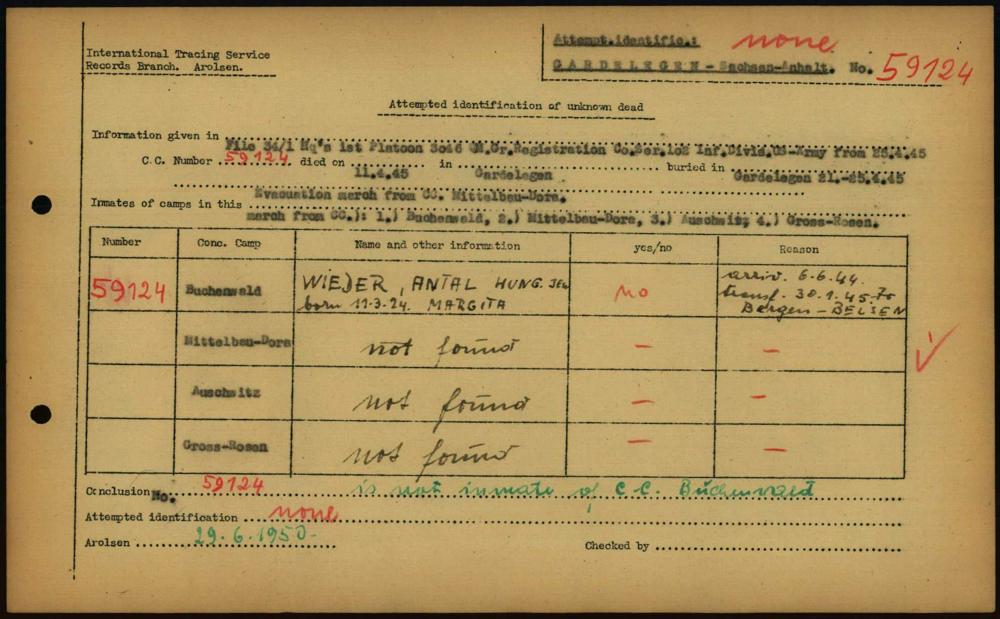 International Tracing Service
Records Branch. Arolsen.
Attempt.identific.: none
GARDELEGEN - Sachsen-Anhalt. No. 59124
Attempted identification of unknown dead
Information given in File 34/1 Hq's 1st Platoon 3046 Registration Co. Ser. 102 Inf. Divis. US-Army from 25.4.45
C.C. Number 59124 died on 11.4.45 in Gardelegen buried in Gardelegen 21.-25.4.45
Evacuation march from CC. Mittelbau-Dora.
Inmates of camps in this march from CC.): 1.) Buchenwald, 2.) Mittelbau-Dora, 3.) Auschwitz 4.) Gross-Rosen.
Number Conc. Camp Name and other information yes/no Reason
59124 Buchenwald WIEDER, ANTAL HUNG. JEW born 11.3.24. MARGITA no arriv. 6.6.44. transf. 30.1.45 to Bergen-BELSEN
Mittelbau-Dora not found — —
Auschwitz not found — —
Gross-Rosen not found — —
Conclusion No. 59124 is not inmate of C.C. Buchenwald
Attempted identification none
Arolsen 29.6.1950.
Checked by